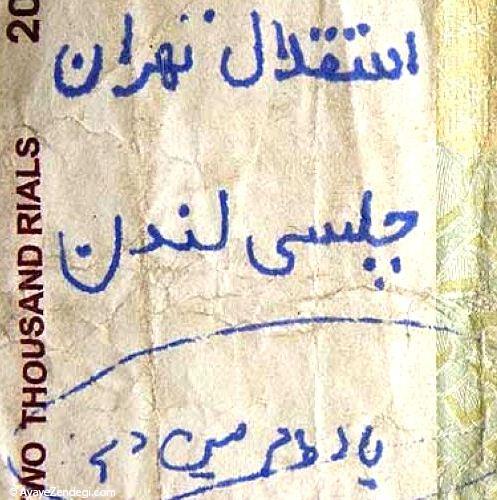 استقلال تهران
چلسی لندن
TWO THOUSAND RIALS
20
© AyayeZendegi.com